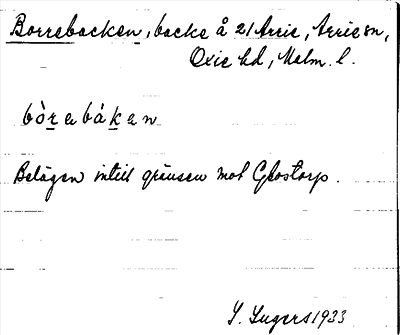 Borrebacken, backe å 21 Arrie, Arrie sn,
Oxie hd, Malm. l.
bòrebáken
Belägen intill gränsen mot Glostorp.
I. Ingers 1933